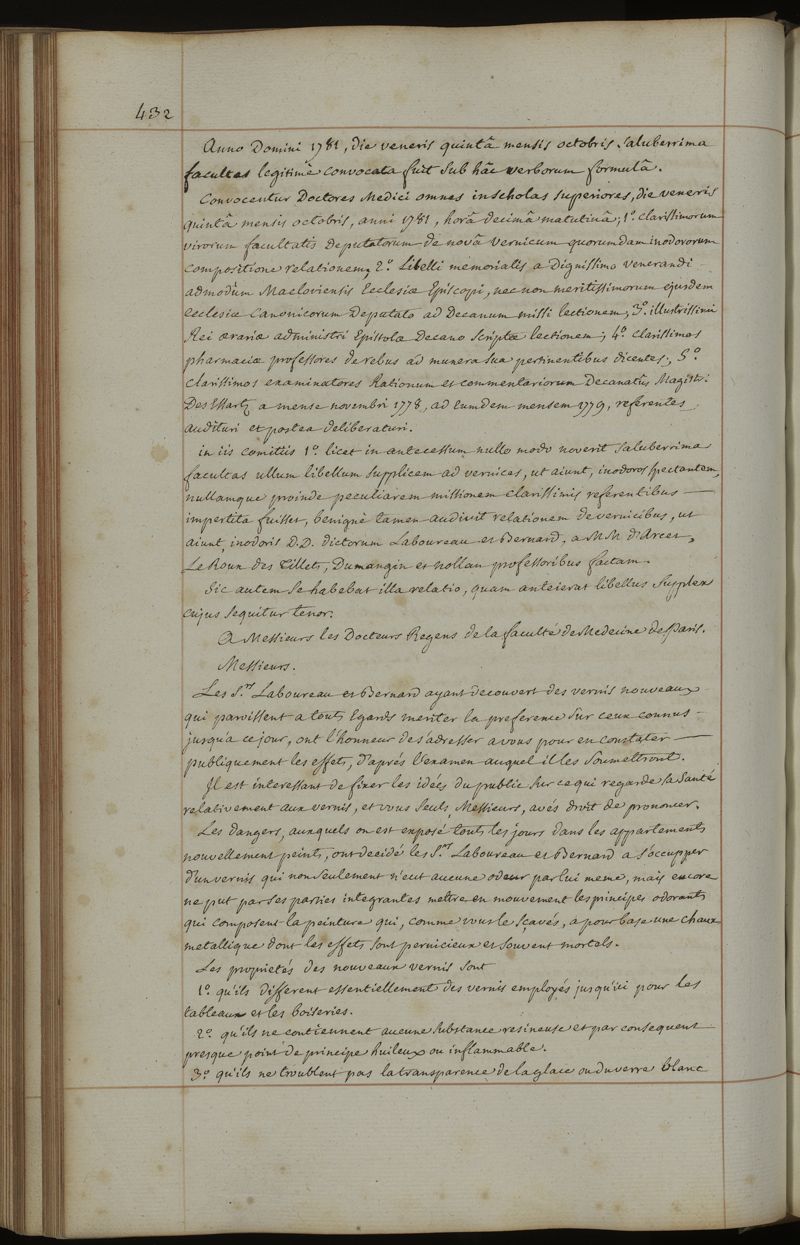 432
Anno Domini 1781, die veneris quintâ mensis octobris, saluberrima
facultas legitimè convocata fuit sub hâc verborum formulâ.
Convocentur Doctores Medici omnes in scholas superiores, die veneris
quintâ mensis octobris, anni 1781, horâ decimâ matutinâ; 1.º clarissimorum
virorum facultatis deputatorum de novâ vernicum quorumdam inodororum
compositione relationem, 2.º Libelli memorialis a Dignissimo venerandi
admodùm Macloviensis Ecclesiæ Episcopi, nec non meritissimorum ejusdem
ecclesiæ Canonicorum Deputato ad Decanum missi lectionem; 3.º illustrissimi
Rei ærariæ administri Epistolæ Decano scriptæ lectionem; 4.º clarissimos
pharmaciæ professores de rebus ad munera sua pertinentibus dicentes; 5.º
clarissimos examinatores Rationum et commentariorum Decanatûs Magistri
Des Essartz a mense novembri 1778, ad eumdem mensem 1779, referentes
audituri et postea deliberaturi.
in iis comitiis 1.º licet in antecessum nullo modo noverit saluberrima
facultas ullum libellum supplicem ad vernices, ut aiunt, inodoros spectantem,
nullamque proinde peculiarem missionem clarissimis referentibus
impertita fuisset, benignè tamen audivit relationem de vernicibus, ut
aiunt, inodoris D.D. dictorum Laboureau et Bernard, a M.M. d'Arcet,
Le Roux des Tillets, Dumangin et nollan professoribus factam.
Sic autem se habebat illa relatio, quam anteierat libellus supplex
cujus sequitur tenor.
A Messieurs les Docteurs Regens de la faculté de Medecine de Paris.
Messieurs.
Les S.rs Laboureau et Bernard ayant decouvert des vernis nouveaux
qui paroissent a touts Egards meriter la preference sur ceux connus
jusqu'a ce jour, ont l'honneur de s'adresser a vous pour en constater
publiquement les effets, d'aprés l'examen auquel il les soumettront.
Il est interessant de fixer les idées du public sur ce qui regarde la santé
relativement aux vernis, et vous seuls, Messieurs, avés droit de prononcer.
Les dangers, auxquels on est exposé touts les jours dans les appartements
nouvellement peints, ont decidé les S.rs Laboureau et Bernard a s'occupper
d'un vernis qui non seulement n'eut aucune odeur par lui meme, mais encore
ne put par ses parties integrantes mettre en mouvement les principes odorants
qui composent la peinture qui, comme vous le sçavés, a pour base une chaux
metallique dont les effets sont pernicieux et souvent mortels.
Les proprietés des nouveaux vernis sont
1.º qu'ils different essentiellement des vernis employés jusqu'ici pour les
tableaux et les boiseries.
2.º qu'ils ne contiennent aucune substance resineuse et par consequent
presque point de principe huileux ou inflammable.
3.º qu'ils ne troublent pas la transparence de la glace ou du verre blanc